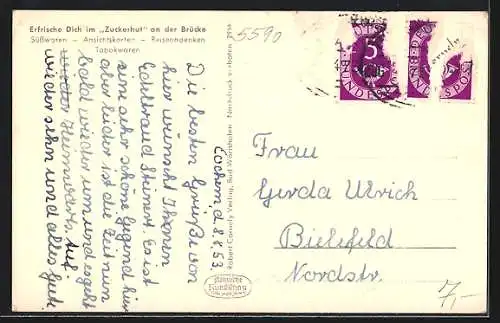 Erfrische Dich im „Zuckerhut" an der Brücke
Süßwaren – Ansichtskarten – Reiseandenken
Tabakwaren
5590
Cochem, d. 8.8.53.
Die besten Grüße von
hier wünscht Ihnen
Edeltraud Steinert. Es ist
eine sehr schöne Gegend hier
aber leider ist die Zeit nun
bald wieder um und es geht
wieder Heimwärts. Auf
wieder sehn und alles gute
Robert Cornely Verlag, Bad Wörishofen Nachdruck verboten
Frau
Gerda Ulrich
Bielefeld
Nordstr.
7,-
5
DEUTSCHE
BUNDESPOST